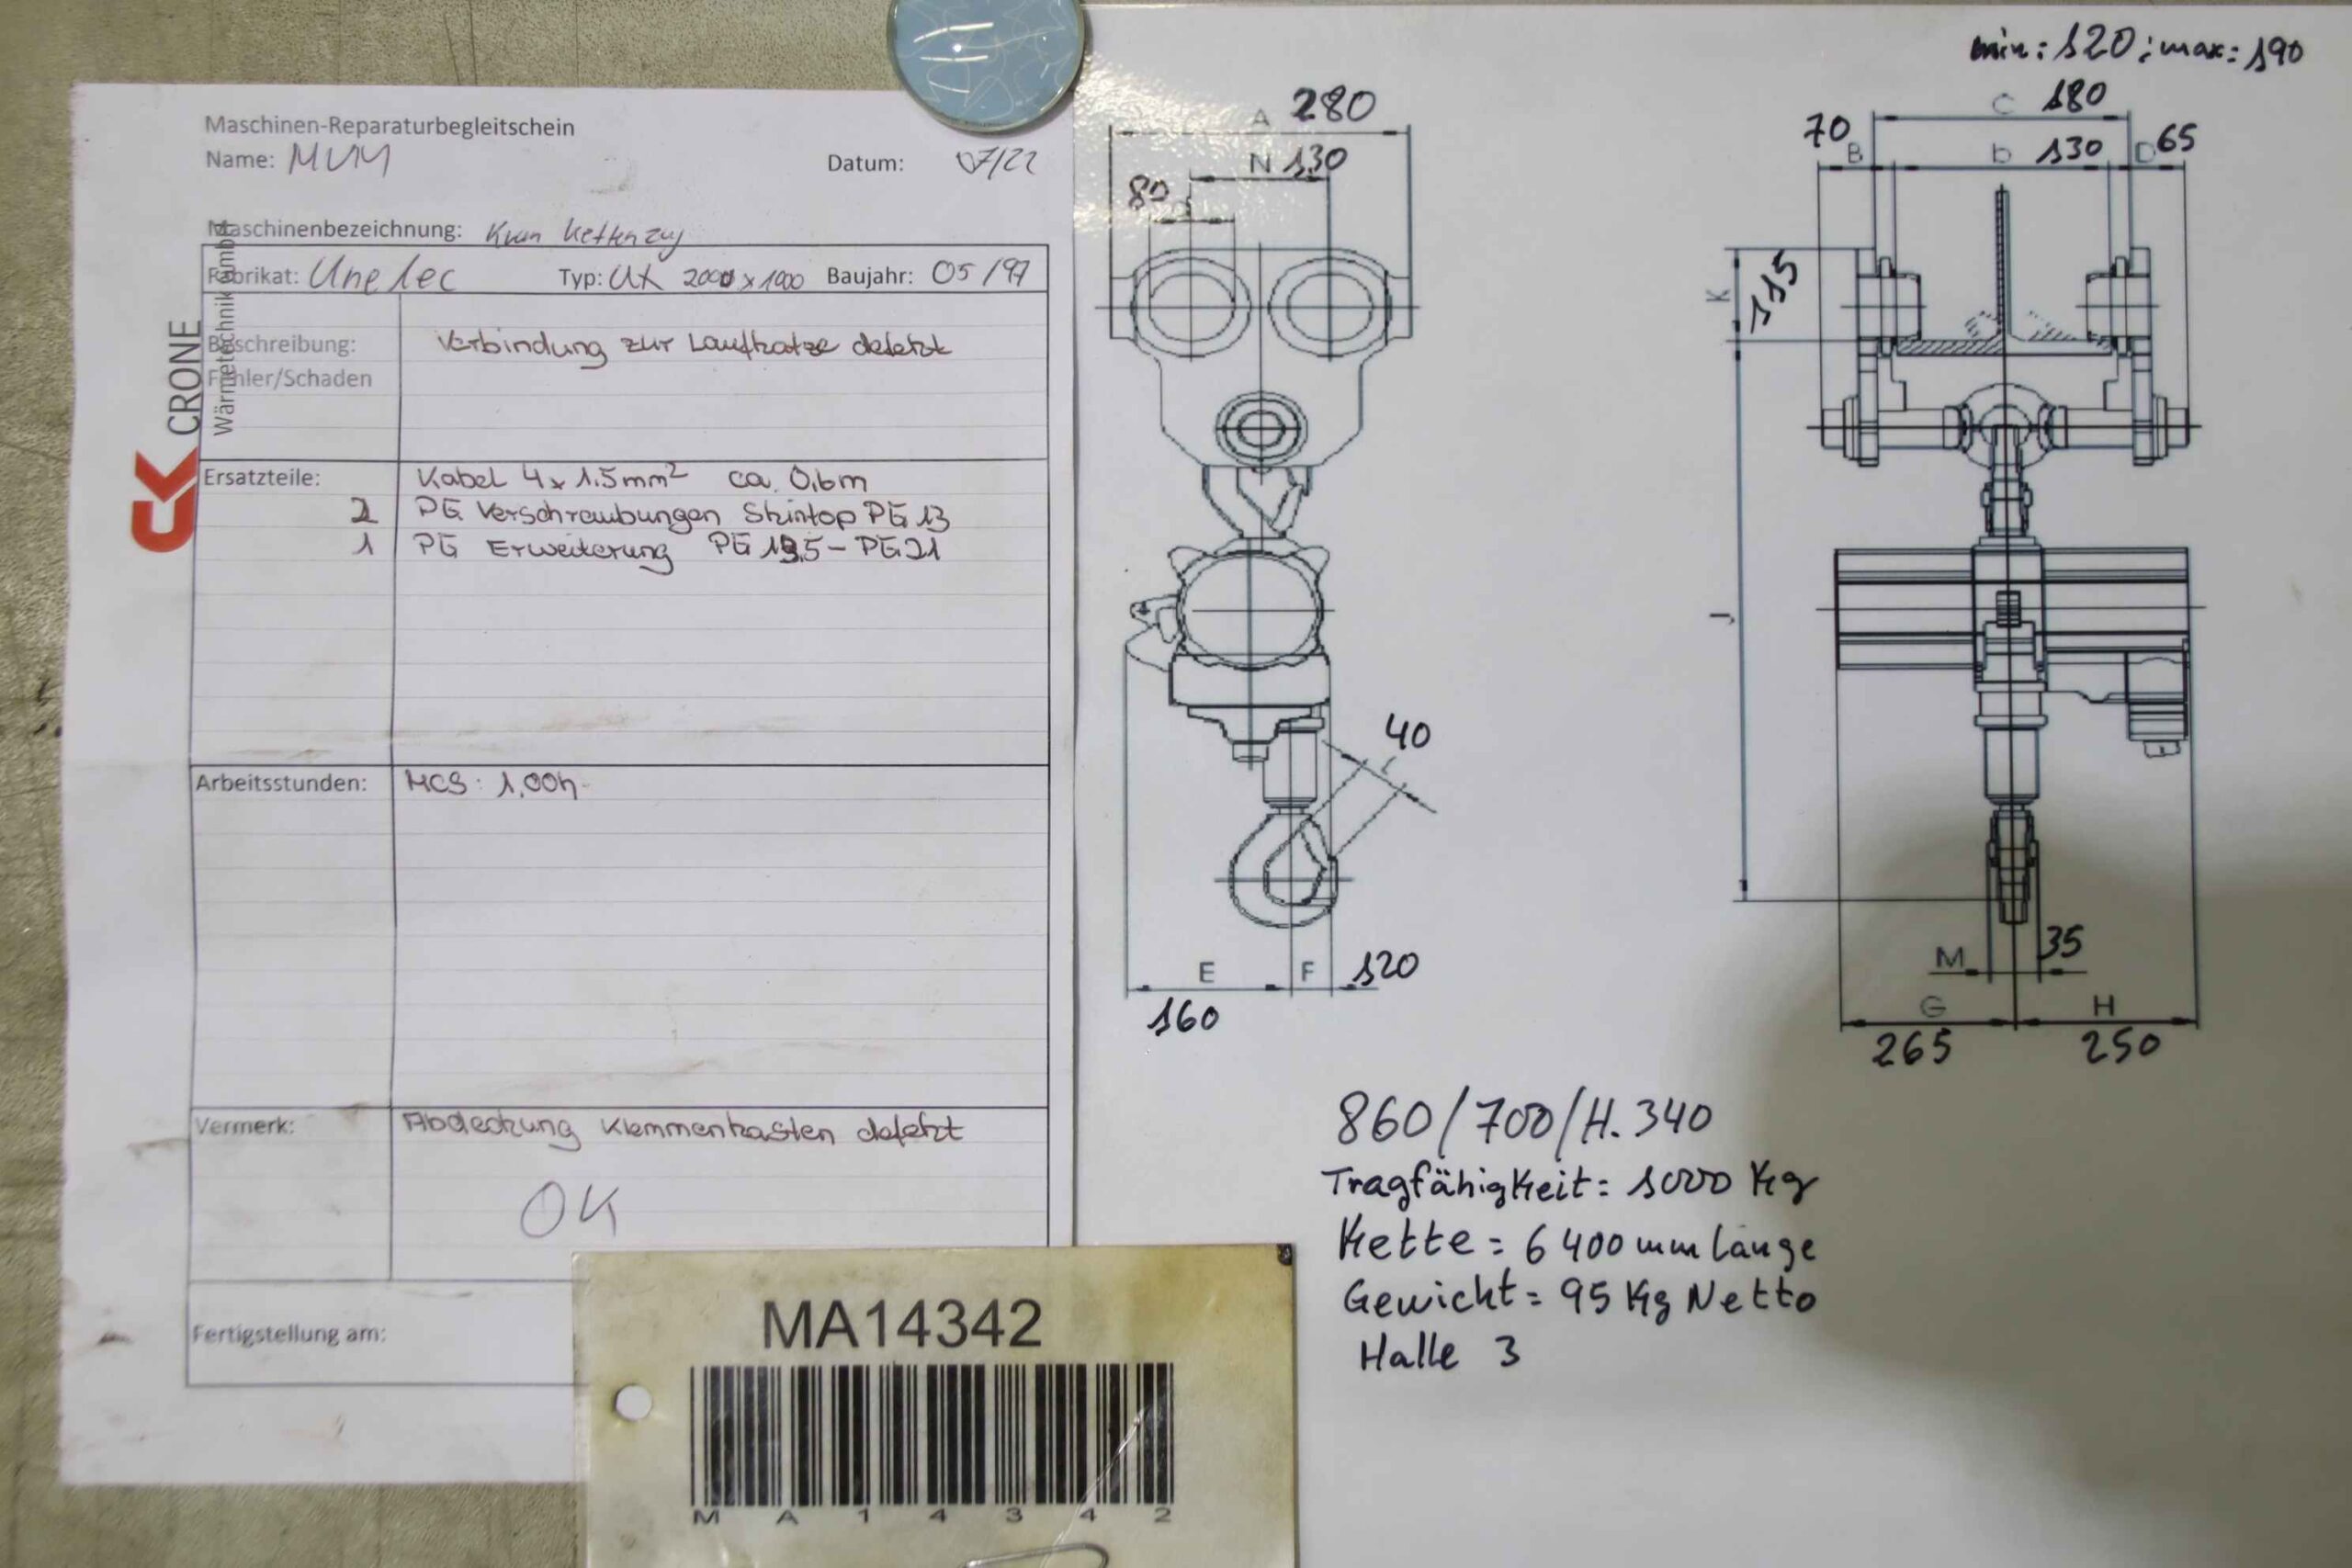 Maschinen-Reparaturbegleitschein
Name: MVM Datum: 07/22
Maschinenbezeichnung: Kran Kettenzug
Fabrikat: Unelec Typ: UX 2000 x 1000 Baujahr: 05/97
CRONE
Wärmetechnik GmbH
Beschreibung: Verbindung zur Laufkatze defekt
Fehler/Schaden
Ersatzteile: Kabel 4x1,5mm² ca. 0,6m
2 PG Verschraubungen Skintop PG 13
1 PG Erweiterung PG 13,5 – PG 21
Arbeitsstunden: MCS: 1,00h
Vermerk: Abdeckung Klemmenkasten defekt
OK
Fertigstellung am:
MA14342
M A 1 4 3 4 2
A 280
N 130
80
40
E F 120
160
min: 120; max: 190
C 180
70 B b 130 D 65
K 115
J
M 35
G H
265 250
860/700/H.340
Tragfähigkeit = 1000 Kg
Kette = 6400 mm Länge
Gewicht = 95 Kg Netto
Halle 3